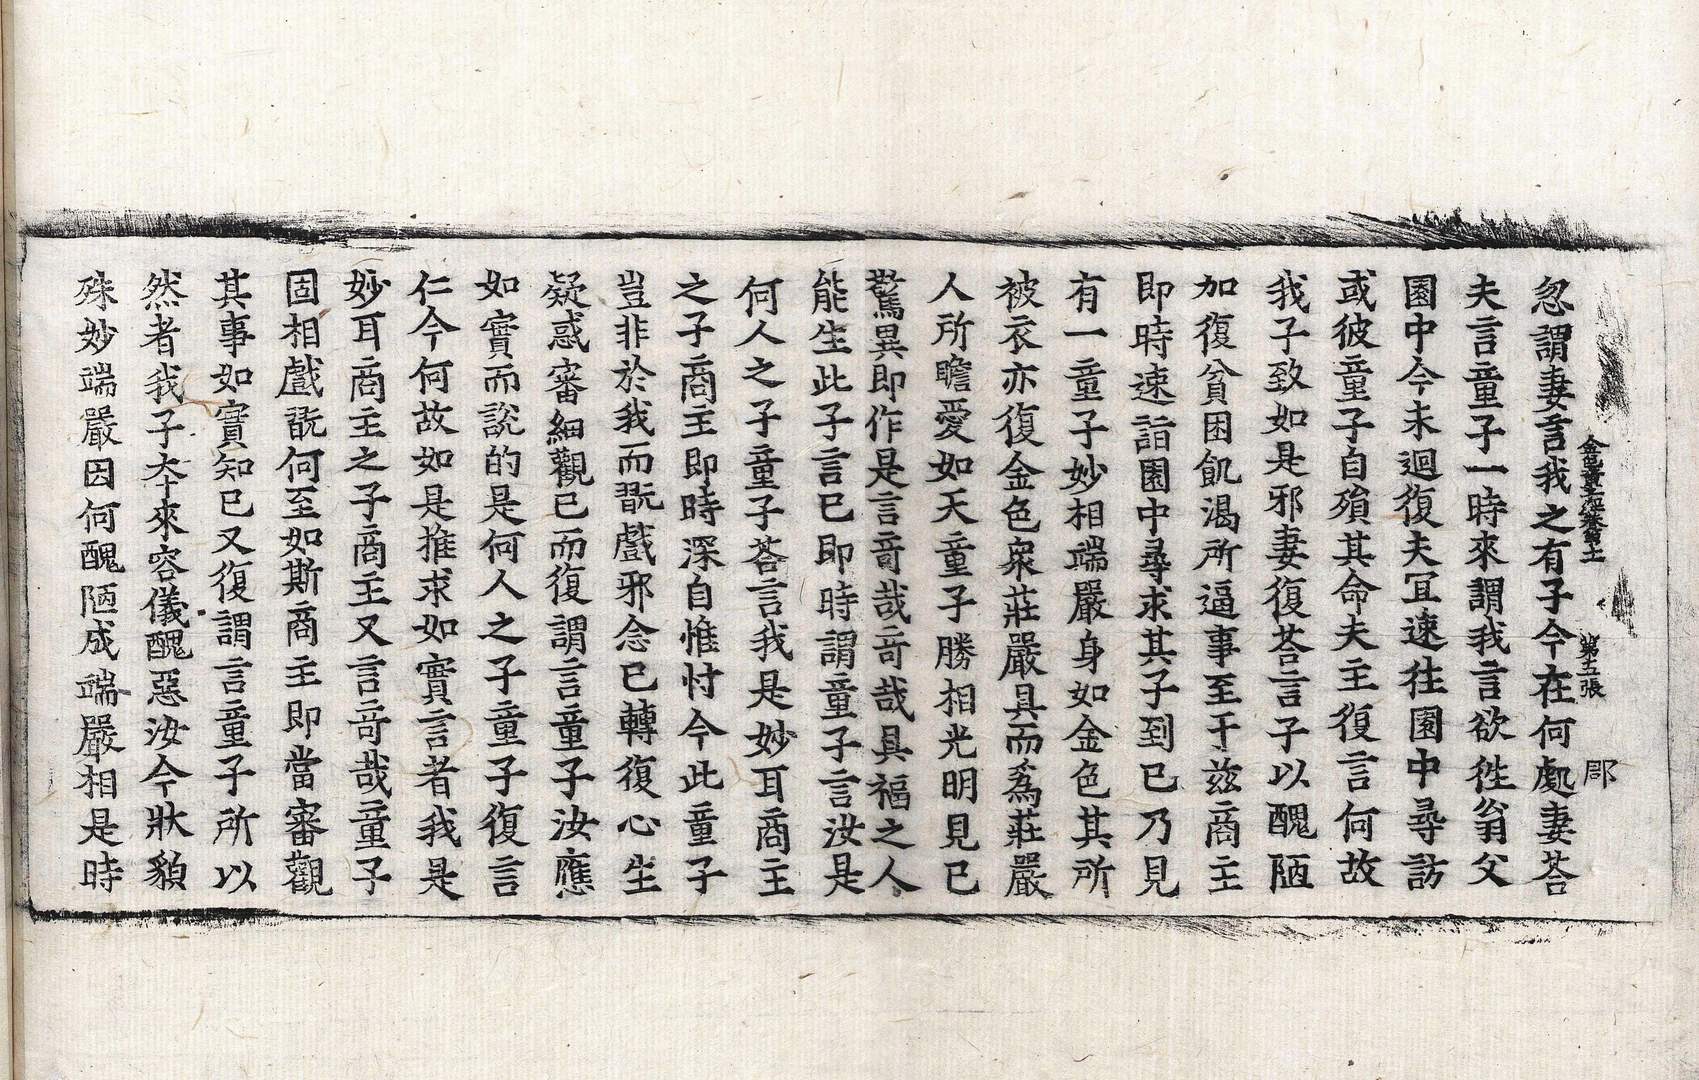 金色童子因緣經卷第十二 第五張 郡
忽謂妻言我之有子今在何處妻荅
夫言童子一時來謂我言欲徃翁父
園中今未迴復夫冝速往園中尋訪
或彼童子自殞其命夫主復言何故
我子致如是邪妻復荅言子以醜陋
加復貧困飢渴所逼事至于兹商主
即時速詣園中尋求其子到已乃見
有一童子妙相端嚴身如金色其所
被衣亦復金色衆莊嚴具而爲莊嚴
人所瞻愛如天童子勝相光明見已
驚異即作是言竒哉竒哉具福之人
能生此子言已即時謂童子言汝是
何人之子童子荅言我是妙耳商主
之子商主即時深自惟忖今此童子
豈非於我而翫戲邪念已轉復心生
疑惑審細觀已而復謂言童子汝應
如實而說的是何人之子童子復言
仁今何故如是推求如實言者我是
妙耳商主之子商主又言竒哉童子
固相戲翫何至如斯商主即當審觀
其事如實知已又復謂言童子所以
然者我子夲來容儀醜惡汝今狀貌
殊妙端嚴因何醜陋成端嚴相是時